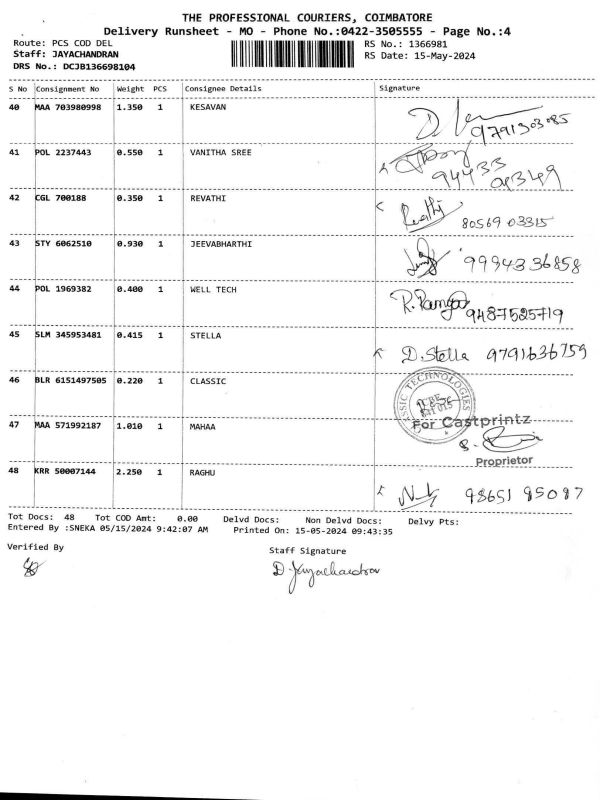 THE PROFESSIONAL COURIERS, COIMBATORE
Delivery Runsheet - MO - Phone No.:0422-3505555 - Page No.:4
Route: PCS COD DEL RS No.: 1366981
Staff: JAYACHANDRAN RS Date: 15-May-2024
DRS No.: DCJB136698104
S No Consignment No Weight PCS Consignee Details Signature
40 MAA 703980998 1.350 1 KESAVAN
9791303085
41 POL 2237443 0.550 1 VANITHA SREE
94433
42 CGL 700188 0.350 1 REVATHI
Revathi 80569 03315
43 STY 6062510 0.930 1 JEEVABHARTHI
9994336858
44 POL 1969382 0.400 1 WELL TECH
9487525719
45 SLM 345953481 0.415 1 STELLA
D. Stella 9791636759
46 BLR 6151497505 0.220 1 CLASSIC
CLASSIC TECHNOLOGIES
47 MAA 571992187 1.010 1 MAHAA
For Castprintz
Proprietor
48 KRR 50007144 2.250 1 RAGHU
98651 85087
Tot Docs: 48 Tot COD Amt: 0.00 Delvd Docs: Non Delvd Docs: Delvy Pts:
Entered By :SNEKA 05/15/2024 9:42:07 AM Printed On: 15-05-2024 09:43:35
Verified By Staff Signature
D. Jayachandran